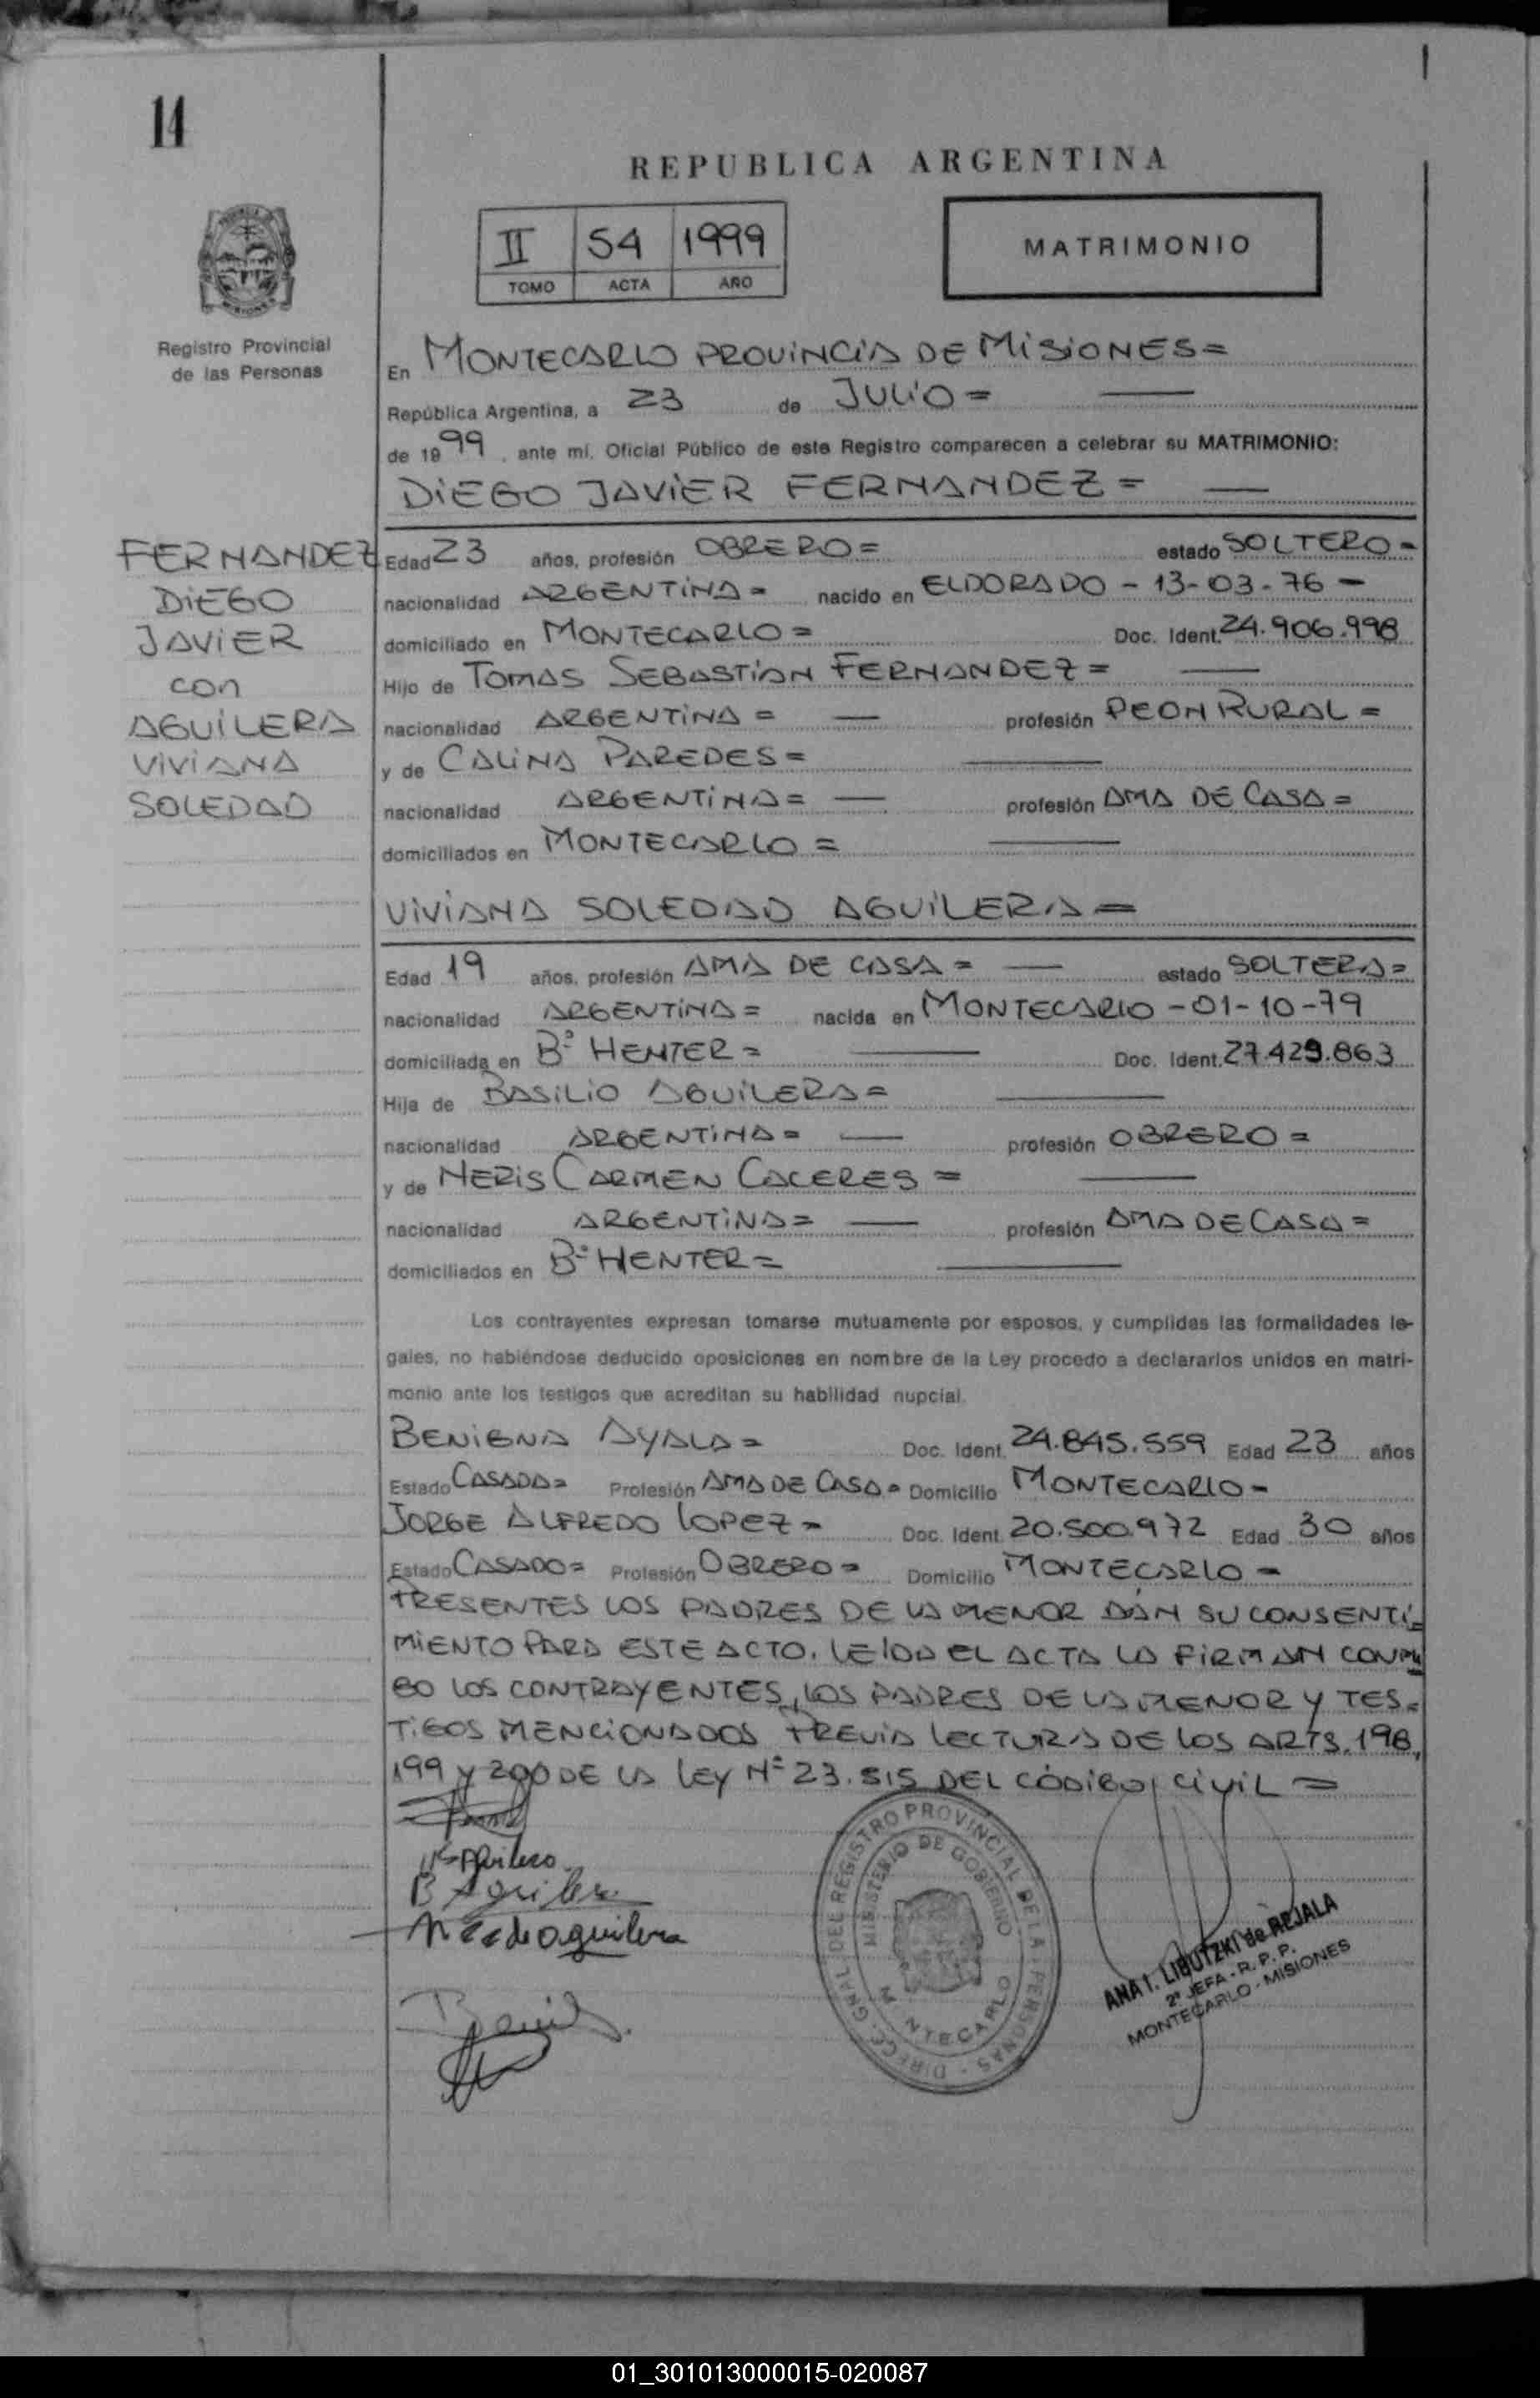 14
REPUBLICA ARGENTINA
II 54 1999
TOMO ACTA AÑO
MATRIMONIO
Registro Provincial
de las Personas
En MONTECARLO PROVINCIA DE MISIONES=
República Argentina, a 23 de JULIO=
de 1999, ante mí, Oficial Público de este Registro comparecen a celebrar su MATRIMONIO:
DIEGO JAVIER FERNANDEZ=
FERNANDEZ
DIEGO
JAVIER
con
AGUILERA
VIVIANA
SOLEDAD
Edad 23 años, profesión OBRERO= estado SOLTERO=
nacionalidad ARGENTINA= nacido en ELDORADO - 13-03-76 -
domiciliado en MONTECARLO= Doc. Ident. 24.906.998
Hijo de TOMAS SEBASTIAN FERNANDEZ=
nacionalidad ARGENTINA= profesión PEON RURAL=
y de CALINA PAREDES=
nacionalidad ARGENTINA= profesión AMA DE CASA=
domiciliados en MONTECARLO=
VIVIANA SOLEDAD AGUILERA=
Edad 19 años, profesión AMA DE CASA= estado SOLTERA=
nacionalidad ARGENTINA= nacida en MONTECARLO - 01-10-79
domiciliada en Bº HENTER= Doc. Ident. 27.429.863
Hija de BASILIO AGUILERA=
nacionalidad ARGENTINA= profesión OBRERO=
y de NERIS CARMEN CACERES=
nacionalidad ARGENTINA= profesión AMA DE CASA=
domiciliados en Bº HENTER=
Los contrayentes expresan tomarse mutuamente por esposos, y cumplidas las formalidades le-
gales, no habiéndose deducido oposiciones en nombre de la Ley procedo a declararlos unidos en matri-
monio ante los testigos que acreditan su habilidad nupcial.
BENIGNA AYALA= Doc. Ident. 24.845.559 Edad 23 años
Estado CASADA= Profesión AMA DE CASA= Domicilio MONTECARLO-
JORGE ALFREDO LOPEZ= Doc. Ident. 20.500.972 Edad 30 años
Estado CASADO= Profesión OBRERO= Domicilio MONTECARLO=
PRESENTES LOS PADRES DE LA MENOR DAN SU CONSENTI=
MIENTO PARA ESTE ACTO. LEIDA EL ACTA LA FIRMAN CONMI
GO LOS CONTRAYENTES, LOS PADRES DE LA MENOR Y TES=
TIGOS MENCIONADOS PREVIA LECTURA DE LOS ARTS. 198,
199 Y 200 DE LA LEY Nº 23.515 DEL CÓDIGO CIVIL=
B Aguilera
N C de Aguilera
DIRECC. GRAL. DEL REGISTRO PROVINCIAL DE LA PERSONAS
MINISTERIO DE GOBIERNO
MONTECARLO
ANA I. LIBUTZKI de REJALA
2ª JEFA - R. P. P.
MONTECARLO - MISIONES
01_301013000015-020087